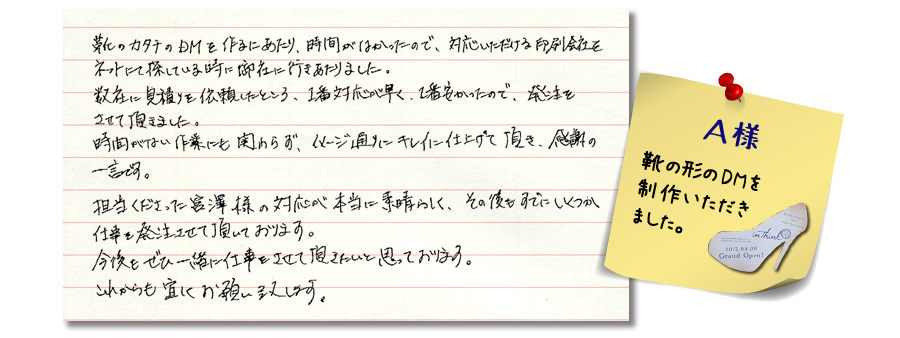 靴のカタチのDMを作るにあたり、時間がなかったので、対応いただける印刷会社を
ネットにて探している時に御社に行きあたりました。
数社に見積りを依頼したところ、1番対応が早く、1番安かったので、発注を
させて頂きました。
時間がない作業にも関わらず、イメージ通りにキレイに仕上げて頂き、感謝の
一言です。
担当くださった宮澤様の対応が本当に素晴らしく、その後もすでにいくつか
仕事を発注させて頂いております。
今後もぜひ一緒に仕事をさせて頂きたいと思っております。
これからも宜しくお願い致します。
A様
靴の形のDMを
制作いただき
ました。
in think
2012.04.08
Grand Open!